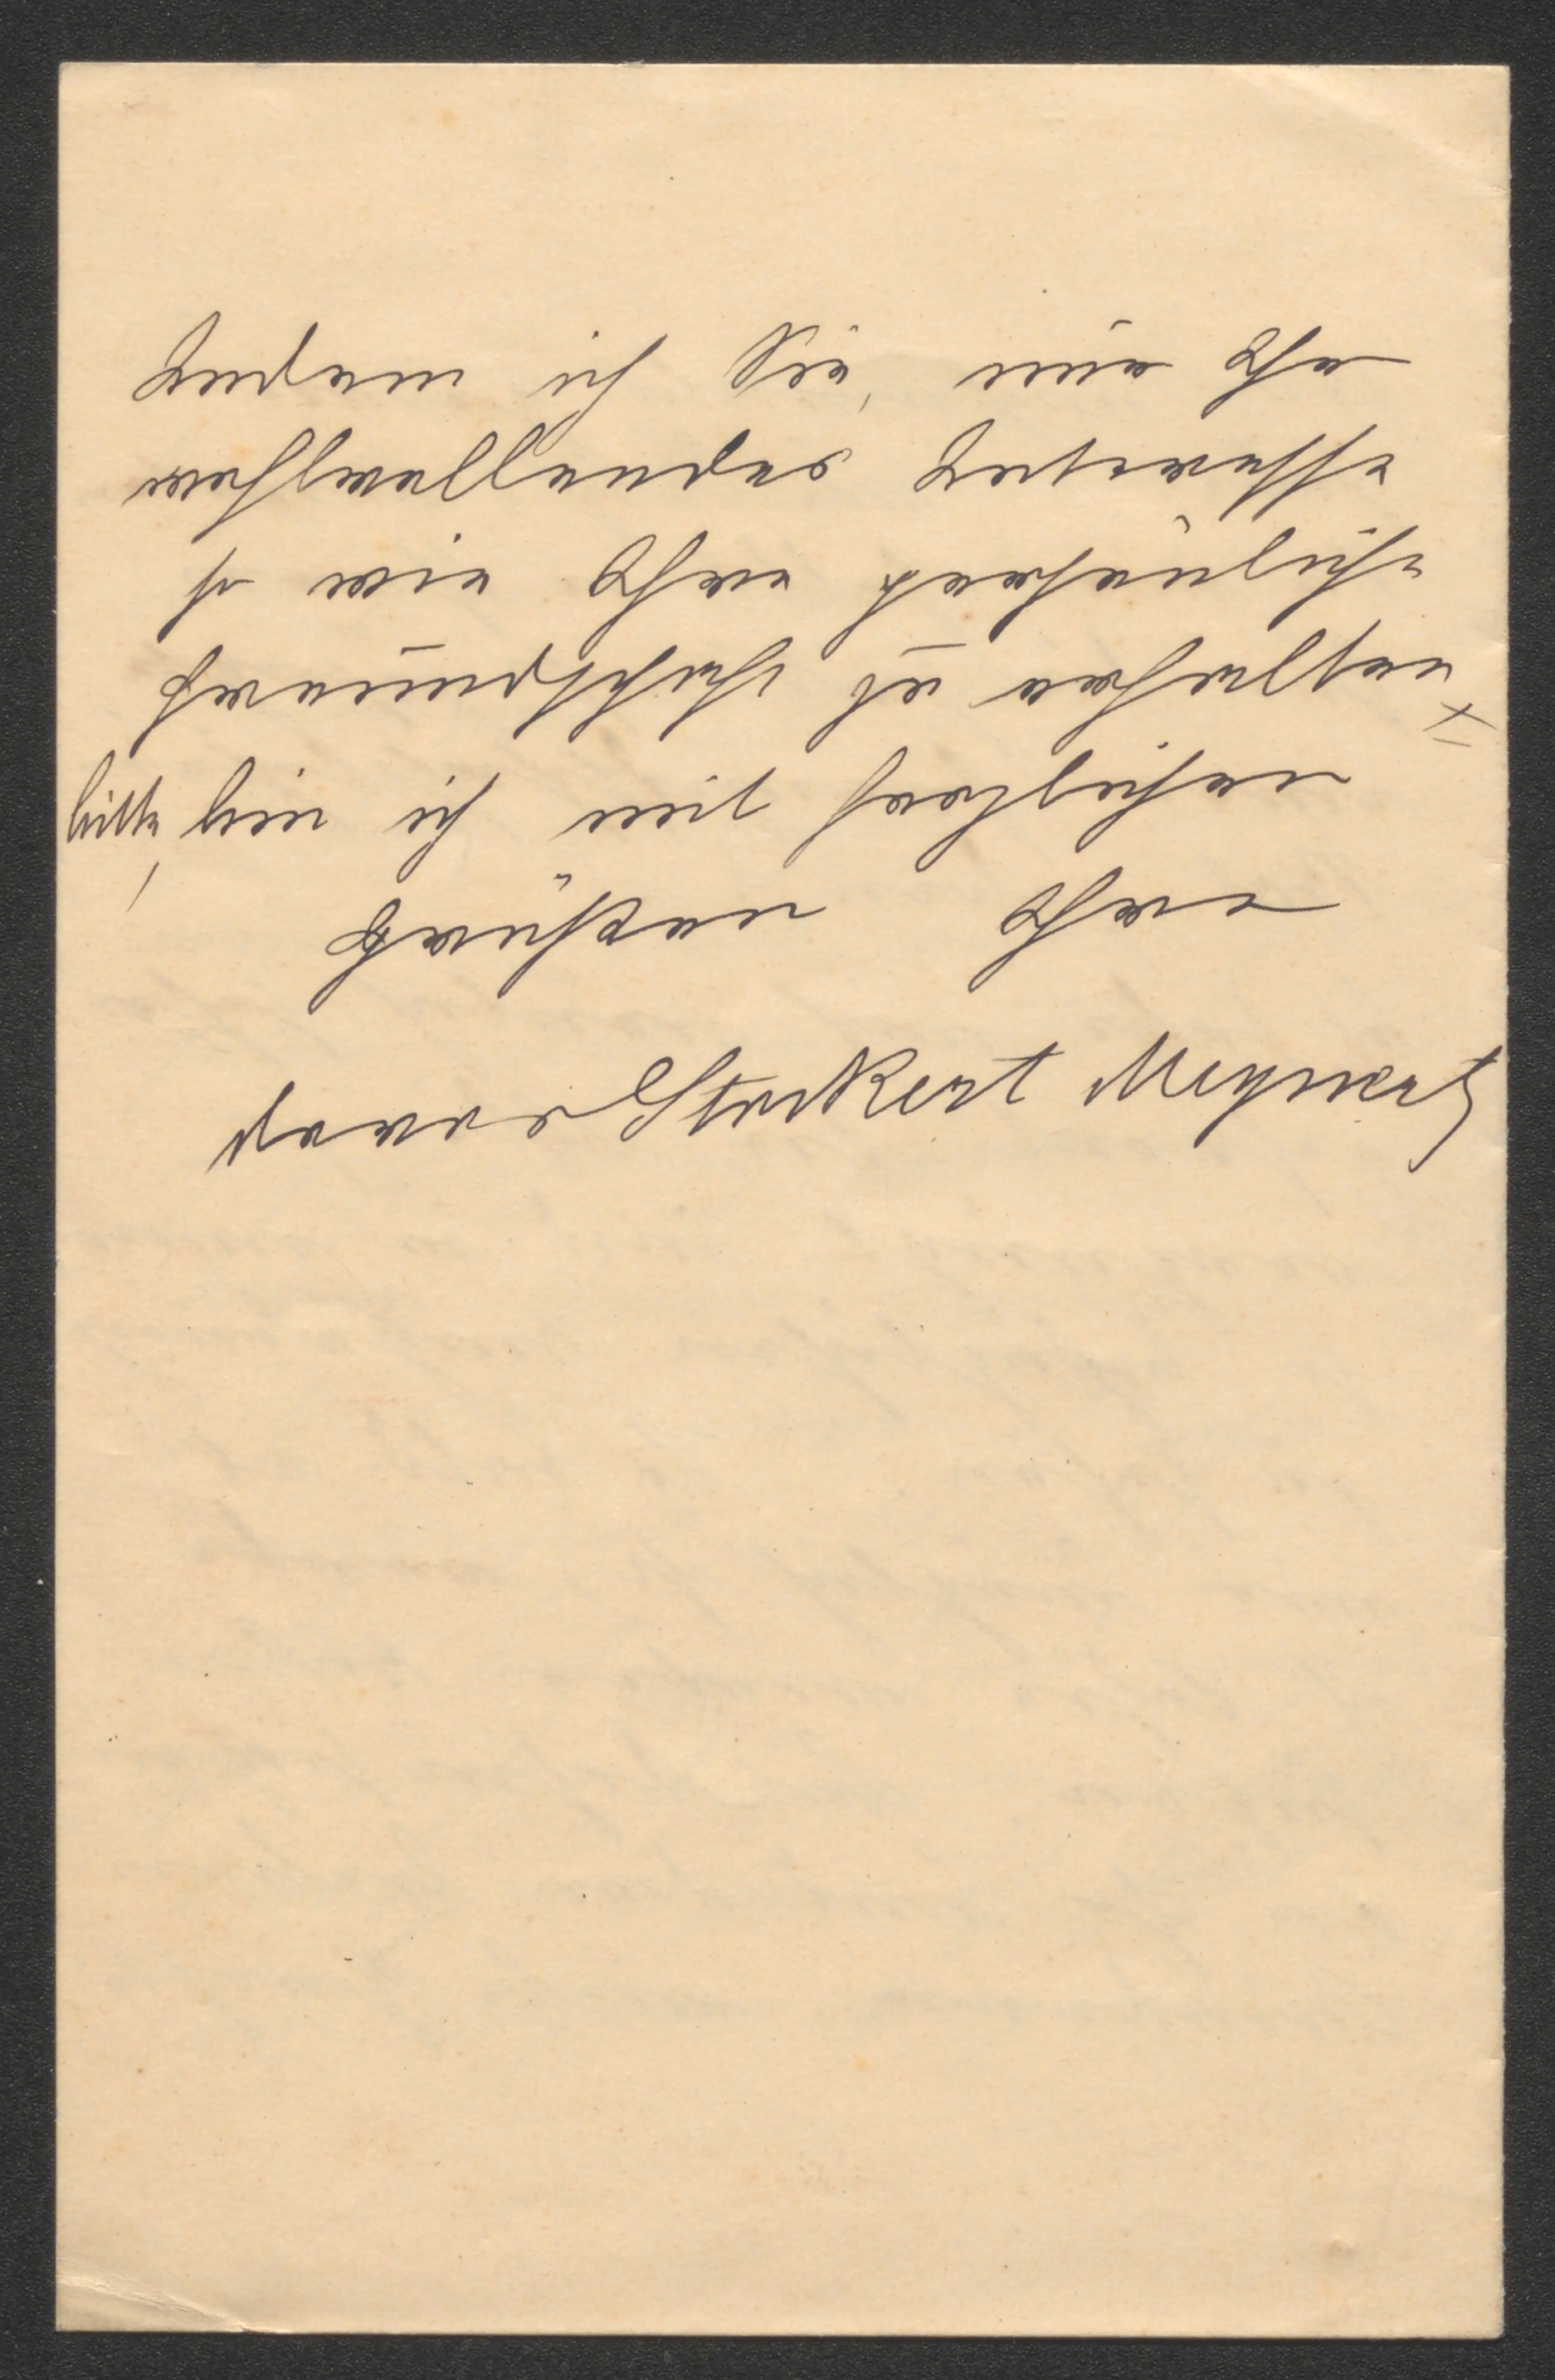 Indem ich Sie, um Ihr
wohlwollendes Interesse
so wie Ihre persönliche
Freundschaft zu erhalten
bitte, bin ich mit herzlichen
Grüßen Ihre
Dora Stockert Meynert